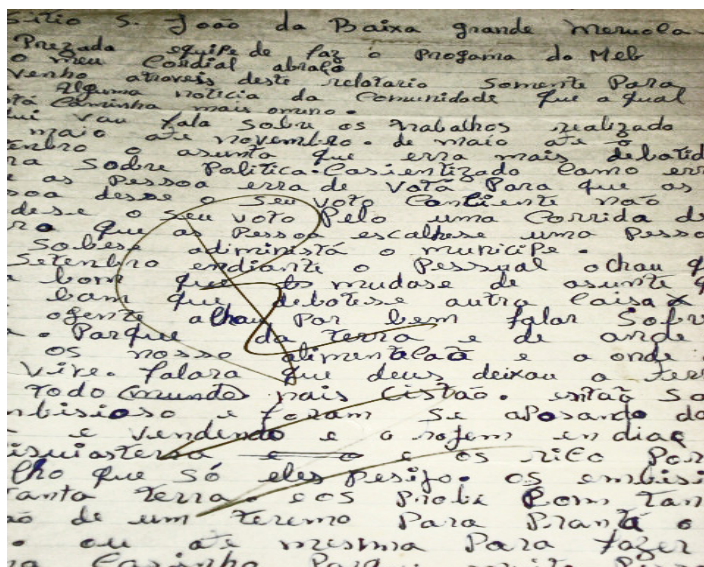 Sitio S. João da Baixa grande Meruoca
Prezada equipe de faz o progama do Meb
o meu Cordial abraço
venho atraveis deste relatario somente Para
alguma noticia da Comunidade que a qual
tá Caminha mais omeno.
ui vau fala Sobre os trabalhos realizado
maio até novembro. de maio até o
embro o asunta que erra mais debatid
ra Sobre Politica. Casientizado Camo err
e as Pessoa erra de Votá Para que as
soa desse o seu voto Canciente não
dese o seu voto Pelo uma Corrida de
ro que as Pessoa escalhese uma Pesso
Sobese administá o municipe.
Setembro endiante o Pessual achau q
bom que nós mudase de asunte q
bam que debatese autra Caisa
agente achau Par bem falar Sobre
Parque da terra e de ande
os nosso alimentacaã e a onde
Vive. falara que deus deixau a terr
Todo mundo mais Cistão. então So
mbisioso e foram se aposando da
e vendendo e o rojem endiaç
isuiasterra e os rico Par
lho que só eles Pesijo. os embisi
tanta terra. e os Probe Com tan
ão de um teremo Para Prantá o
o ou até mesma Para fazer
Casinha Para